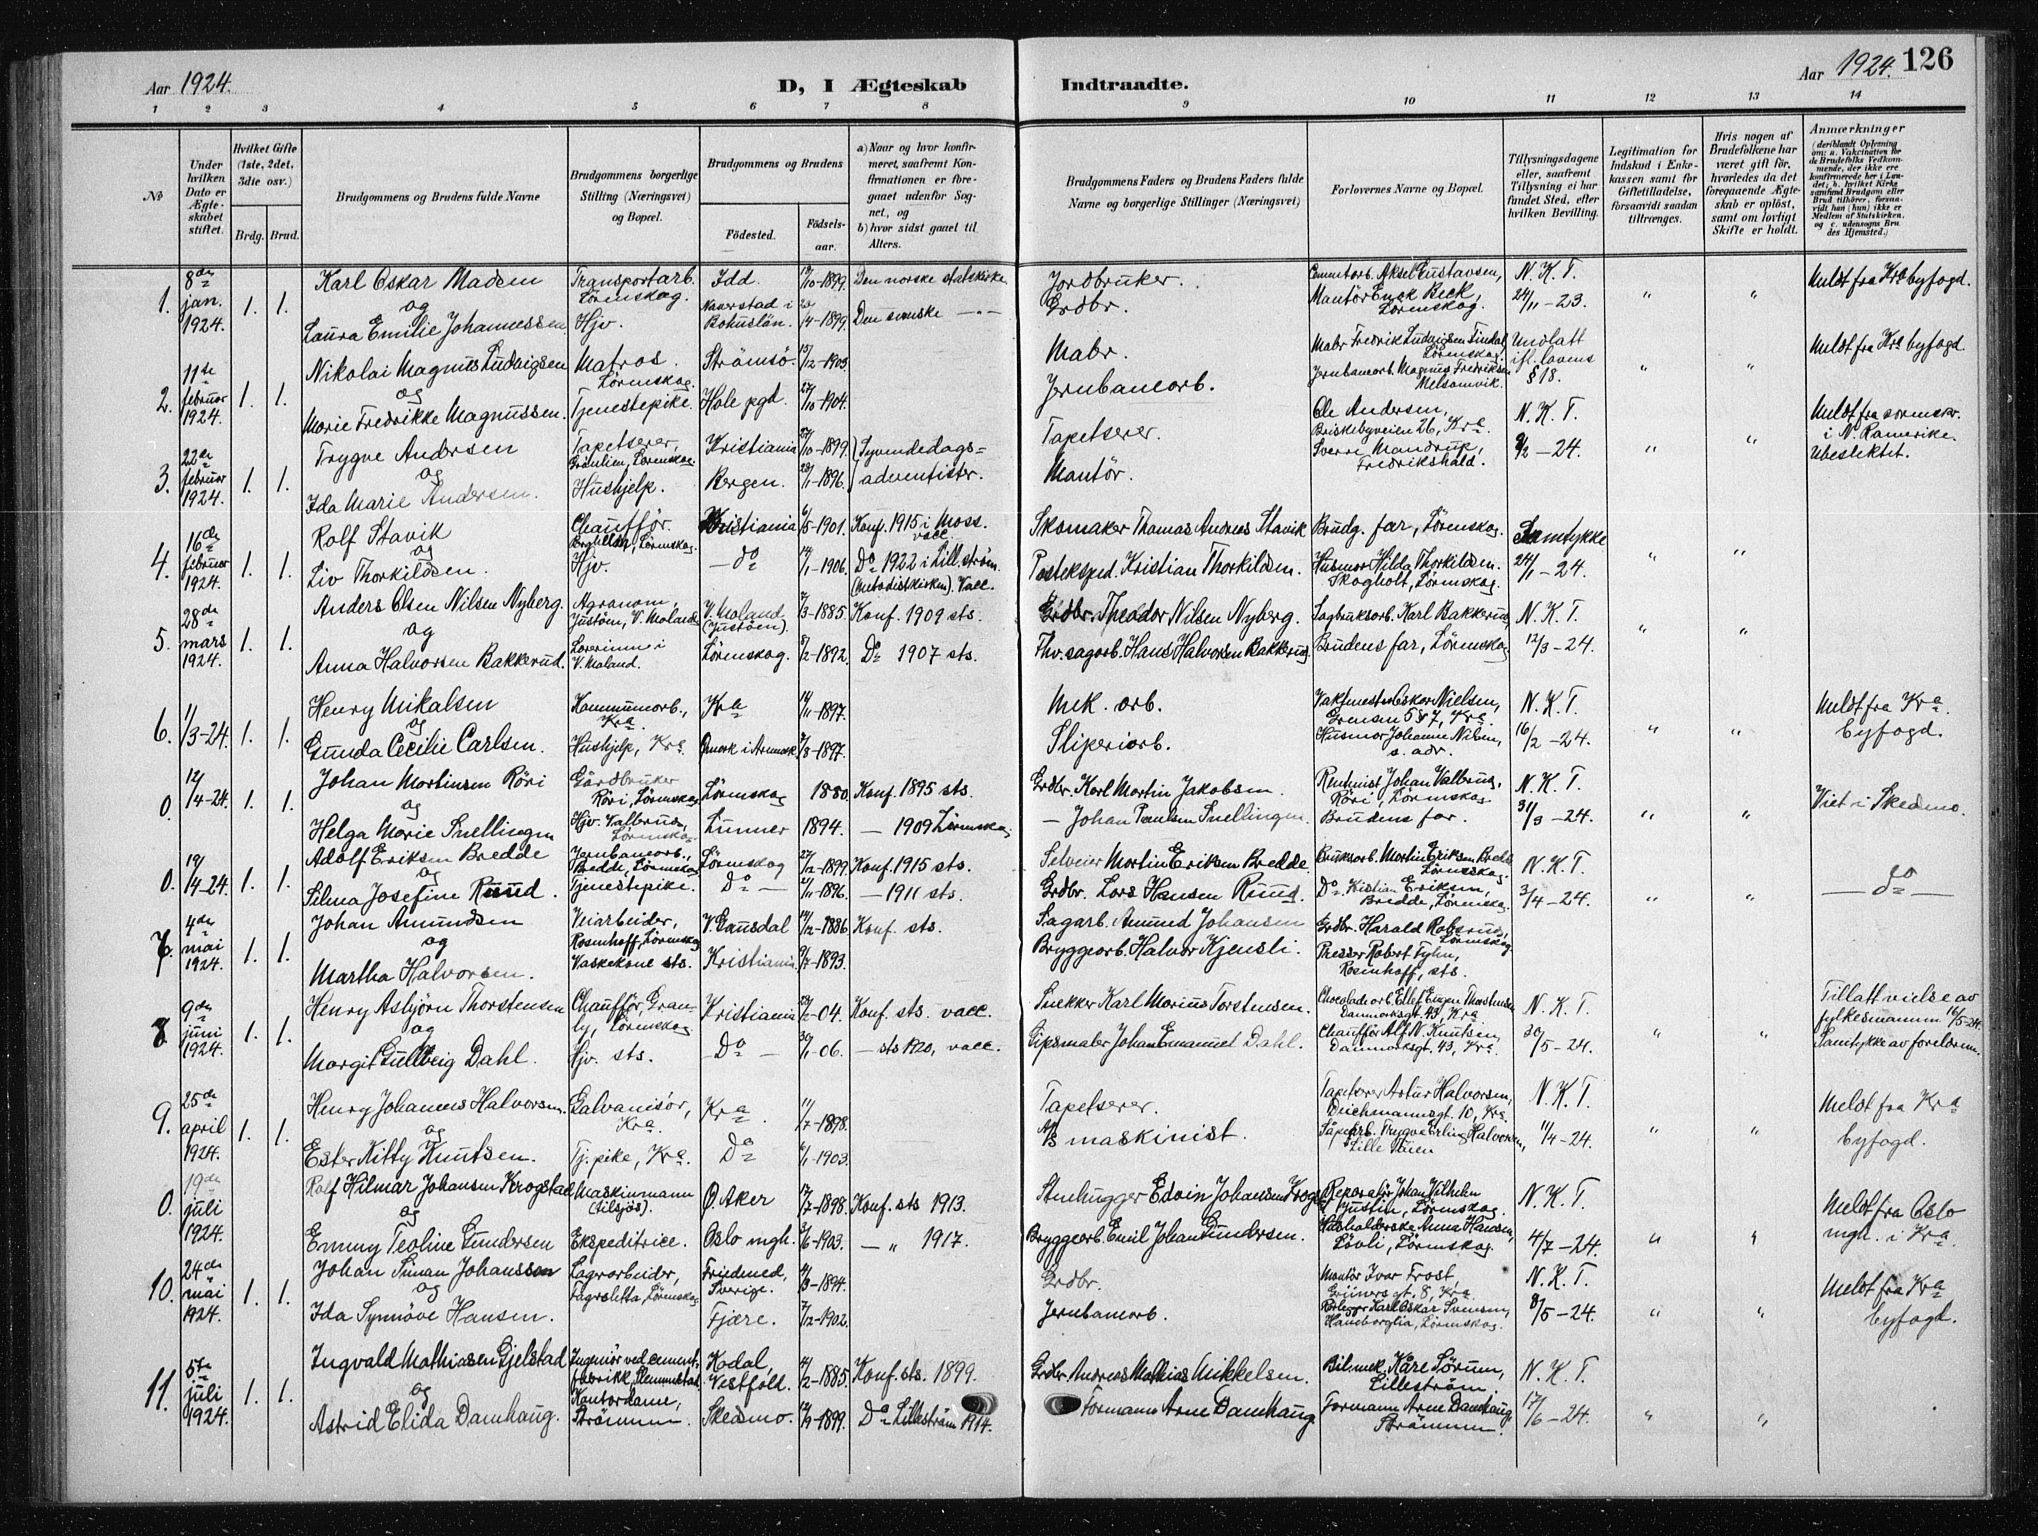 Aar 1924.
D, I Ægteskab
Indtraadte.
Aar 1924. 126
1 2 3 4 5 6 7 8 9 10 11 12 13 14
№
Under hvilken Dato er Ægteskabet stiftet.
Hvilket Gifte (1ste, 2det, 3die osv.)
Brdg. Brud.
Brudgommens og Brudens fulde Navne
Brudgommens borgerlige Stilling (Næringsvei) og Bopæl.
Brudgommens og Brudens
Fødested.
Fødselsaar.
a) Naar og hvor konfirmeret, saafremt Konfirmationen er foregaaet udenfor Sognet, og
b) hvor sidst gaaet til Alters.
Brudgommens Faders og Brudens Faders fulde Navne og borgerlige Stillinger (Næringsvei)
Forlovernes Navne og Bopæl.
Tillysningsdagene eller, saafremt Tillysning ei har fundet Sted, efter hvilken Bevilling.
Legitimation for Indskud i Enkekassen samt for Giftetilladelse, forsaavidt saadan tiltrænges.
Hvis nogen af Brudefolkene har været gift før, hvorledes da det foregaaende Ægteskab er opløst, samt om lovligt Skifte er holdt.
Anmærkninger
1. 8de jan. 1924. 1. 1. Karl Oskar Madsen Transportarb. Lørenskog. Idd. 19/10-1899. Den norske statskirke Jordbruker. Cementarb. Aksel Gustavsen, N. K. T. " " Meldt fra Kra byfogd.
og
Laura Emilie Johannessen Hjv. Naverstad i Bohuslän. 23/4-1899. Den svenske —"— Grdbr. Montør Beck, Lørenskog. 24/11-23.
2. 11te februar 1924. 1. 1. Nikolai Magnus Ludvigsen Matros. Lørenskog. Strømsø. 15/12-1903. Mabr. Mabr Fredrik Ludvigsen Lørenskog. Undlatt ifl. lovens § 18. " " Meldt fra Kra byfogd.
og
Marie Fredrikke Magnussen. Tjenestepike. Hole pgd. 27/10-1904. Jernbanearb. Jernbanearb. Magnus Fredriksen Melsomvik.
3. 22de februar 1924. 1. 1. Trygve Andersen Tapetserer, Grønlien, Lørenskog. Kristiania 27/10-1899. Syvendedags- Tapetserer. Ole Andersen, Briskebyveien 26, Kra. N. K. T. " " Meldt fra sorenskr. i N. Romerike. Ubeslektet.
og
Ida Marie Andersen. Hushjelp. Bergen. 28/1-1896. adventister. Montør. Sverre Mandrup, Fredrikshald. 9/2-24.
4. 16de februar 1924. 1. 1. Rolf Stavik Chauffør. Lørenskog. Kristiania 6/5-1901. Konf. 1915 i Moss. vacc. Skomaker Thomas Andreas Stavik Brudg. far, Lørenskog Samtykke " "
og
Liv Thorkildsen. Hjv. —Do 14/1-1906. Do 1922 i Lillestrøm (Metodistkirken). Vacc. Postekspd. Kristian Thorkildsen. Husmor Hilda Thorkildsen. Skogholt, Lørenskog. 24/1-24.
5. 28de mars 1924. 1. 1. Anders Olsen Nilsen Nyberg. Agronom, Justøen, V. Moland V. Moland (Justøen). 7/3-1885. Konf. 1909 sts. Grdbr. Theodor Nilsen Nyberg. Sagbruksarb. Karl Bakkerud, N. K. T. " "
og
Anna Halvorsen Bakkerud. Lærerinne i V. Moland. Lørenskog. 8/2-1892. Do 1907 sts. Fhv. sagarb. Hans Halvorsen Bakkerud. Brudens far, Lørenskog 12/3-24.
6. 11/3-24. 1. 1. Henry Mikalsen Kommunearb., Kra Kra 14/11-1897. Mek. arb. Vaktmester Oskar Nielsen, Grensen 5&7, Kra. N. K. T. " " Meldt fra Kra. byfogd.
og
Gunda Cecilie Carlsen. Hushjelp, Kra. Ømork i Aremark 7/8-1897. Sliperiarb. Husmor Johanne Nilsen, s. adr. 16/2-24.
0. 12/4-24. 1. 1. Johan Martinsen Röri Gårdbruker Röri, Lørenskog Lørenskog 1880 Konf. 1895 sts. Grdbr. Karl Martin Jakobsen. Rentenist Johan Valbrud, Röri, Lørenskog N. K. T. " " Viet i Skedsmo.
og
Helga Marie Snellingen Hjv. Valbrud, Lørenskog Lunner 1894. — 1909 Lørenskog — Johan Paulsen Snellingen. Brudens far. 31/3-24.
0. 19/4-24. 1. 1. Adolf Eriksen Bredde Jernbanearb., Bredde, Lørenskog Lørenskog 27/2-1899. Konf. 1915 sts. Selveier Martin Eriksen Bredde. Bruksarb. Martin Eriksen Bredde Lørenskog. N. K. T. " " — do —
og
Selma Josefine Ruud. Tjenestepike. Do — 21/11-1896. — 1911 sts. Grdbr. Lars Hansen Ruud. Do Kristian Eriksen, Bredde, Lørenskog. 3/4-24.
7. 4de mai 1924. 1. 1. Johan Amundsen Veiarbeider, Rosenhoff, Lørenskog V. Gausdal 14/12-1886 Konf. sts. Sagarb. Amund Johansen Grdbr. Harald Robsrud, Lørenskog
og
Martha Halvorsen. Vaskekone sts. Kristiania 9/7-1893. Bryggearb. Halvor Kjensli. Presser Robert Fyhn, Rosenhoff, sts.
8 9de juni 1924. 1. 1. Henry Asbjørn Thorstensen Chauffør, Granly, Lørenskog Kristiania 28/2-04. Konf. sts. vacc. Snekker Karl Marius Torstensen. Chocoladearb. Ellef Eugen Thorstensen Danmarksgt. 43, Kra N. K. T. " " Tillatt vielse av fylkesmannen 16/5-24.
og
Margit Gullveig Dahl. Hjv. sts. Do — 30/1-06. — sts 1920, vacc. Gipsmaler Johan Emanuel Dahl. Chauffør Alf N. Knutsen, Danmarksgt. 43, Kra. 30/5-24. Samtykke av foreldrene.
9. 25de april 1924. 1. 1. Henry Johannes Halvorsen. Galvanisør, Kra. Kra. 11/7-1898. Tapetserer. Tapetserer Artur Halvorsen, Deichmannsgt. 10, Kra. N. K. T. " " Meldt fra Kra byfogd.
og
Ester Kitty Knutsen. Tj. pike, Kra. Do 6/1-1903. maskinist. Trygve Erling Halvorsen, 11/4-24.
0. 19de juli 1924. Rolf Hilmar Johansen Krogstad Maskinmann (tilsjøs). Ø. Aker 17/7-1898. Konf. sts 1913. Stenhugger Edvin Johansen Krogstad Reparatør Johan Vilhelm Justin, Lørenskog. N. K. T. " " Meldt fra Oslo mgh. i Kra.
og
Emmy Teoline Gundersen Ekspeditrice. Oslo mgh. 5/6-1903. — " 1917. Bryggearb. Emil Johan Gundersen. Husholderske Anna Hansen, Løvli, Lørenskog. 4/7-24.
10. 24de mai 1924. 1. 1. Johan Simon Johansson Lagerarbeider, Fagersletta, Lørenskog Friedened, Sverige. 4/3-1894. Grdbr. Montør Ivar Frost, Grünersgt. 8, Kra N. K. T. " " Meldt fra Kra byfogd.
og
Ida Synnöve Hansen. Fjære. 7/12-1902. Jernbanearb. Karl Oskar Svensen, Haneborglia, Lørenskog. 8/5-24.
11. 5te juli 1924. 1. 1. Ingvald Mathiasen Gjelstad Ingeniør ved cementfabrikk, Slemmestad Kodal, Vestfold. 4/2-1885. Konf. sts. 1899. Grdbr. Andreas Mathias Mikkelsen. Bilmek. Kåre Sørum, Lilleström. N. K. T. " "
og
Astrid Elida Damhaug. Kontordame, Strømmen. Skedsmo. 14/9-1899. Do Lilleström 1914. Formann Arne Damhaug. Formann Arne Damhaug Strømmen. 17/6-24.